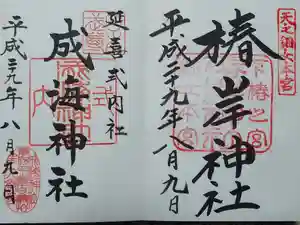 椿岸神社
平成二十九年八月九日
延喜式内社
成海神社
平成二十九年八月九日